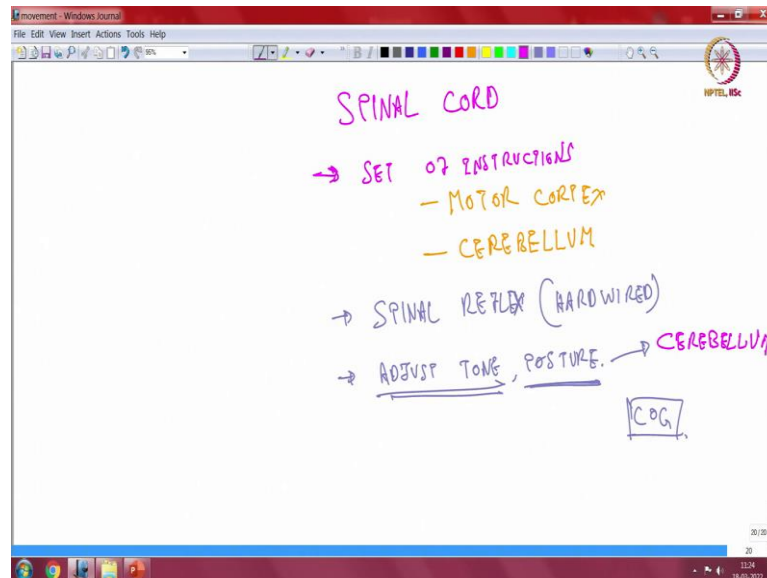 movement - Windows Journal
File Edit View Insert Actions Tools Help
95%
NPTEL, IISc
SPINAL CORD
→ SET OF INSTRUCTIONS
- MOTOR CORTEX
- CEREBELLUM
→ SPINAL REFLEX (HARDWIRED)
→ ADJUST TONE, POSTURE. → CEREBELLUM
COG
20/20
20
11:24
18-03-2022